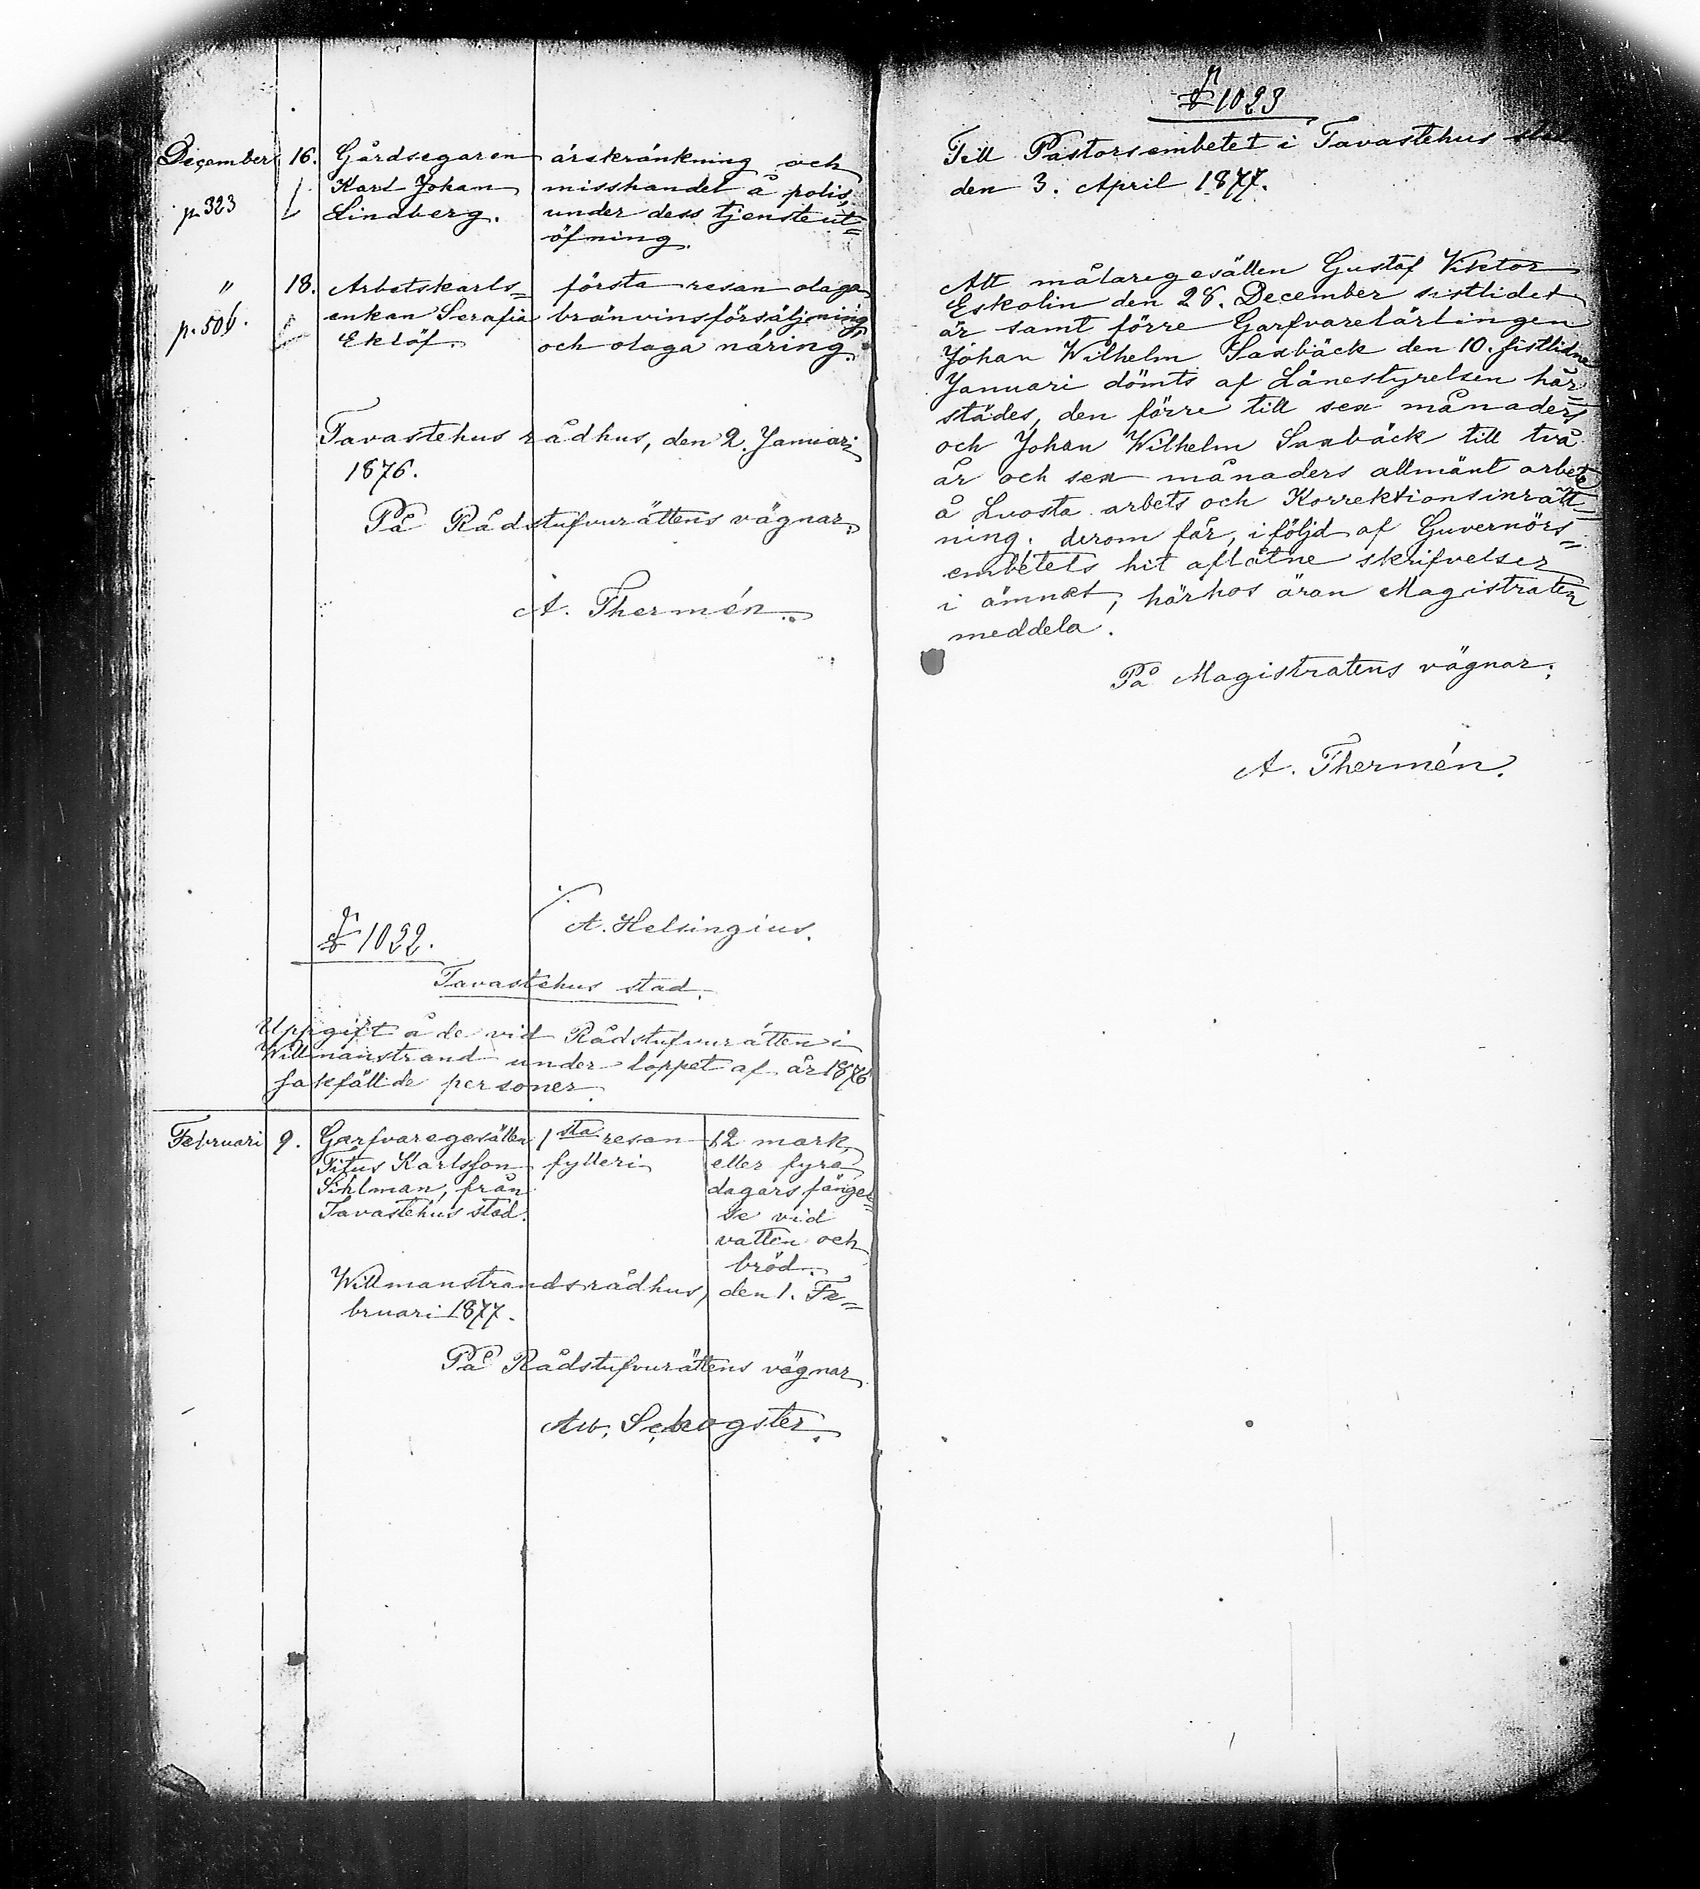 December 16. Gårdsegaren ärekränkning och
Karl Johan misshandel å polis,
p. 323 Lindberg. under dess tjensteut=
öfning.
" 18. Arbetskarls= första resan olaga
p. 506. enkan Serafia bränvinsförsäljning
Eklöf. och olaga näring.
Tavastehus rådhus, den 2. Januari
1876.
På Rådstufvurättens vägnar:
A. Thermén.
A. Helsingius.
№ 1022.
Tavastehus stad.
Uppgift å de vid Rådstufvurätten i
Willmanstrand under loppet af år 1876
sakfällde personer.
Februari 9. Garfvaregesällen 1sta resan 12 mark,
Titus Karlsson fylleri eller fyra
Sihlman, från dagars fänge=
Tavastehus stad. lse vid
vatten och
bröd.
Willmanstrands rådhus, den 1. Fe=
bruari 1877.
På Rådstufvurättens vägnar
Aw. Schogster.
№ 1023
Till Pastorsembetet i Tavastehus stad
den 3. April 1877.
Att målaregesällen Gustaf Viktor
Eskolin den 28. December sistlidet
år samt förre Garfvarelärlingen
Johan Wilhelm Saxbäck den 10. sistlidne
Januari dömts af Länestyrelsen här=
städes, den förre till sex månaders
och Johan Wilhelm Saxbäck till två
år och sex månaders allmänt arbete
å Luosta arbets och Korrektionsinrätt=
ning; derom får, i följd af Guvernörs=
embetets hit aflåtne skrifvelser
i ämnet, härhos äran Magistraten
meddela.
På Magistratens vägnar:
A. Thermén.